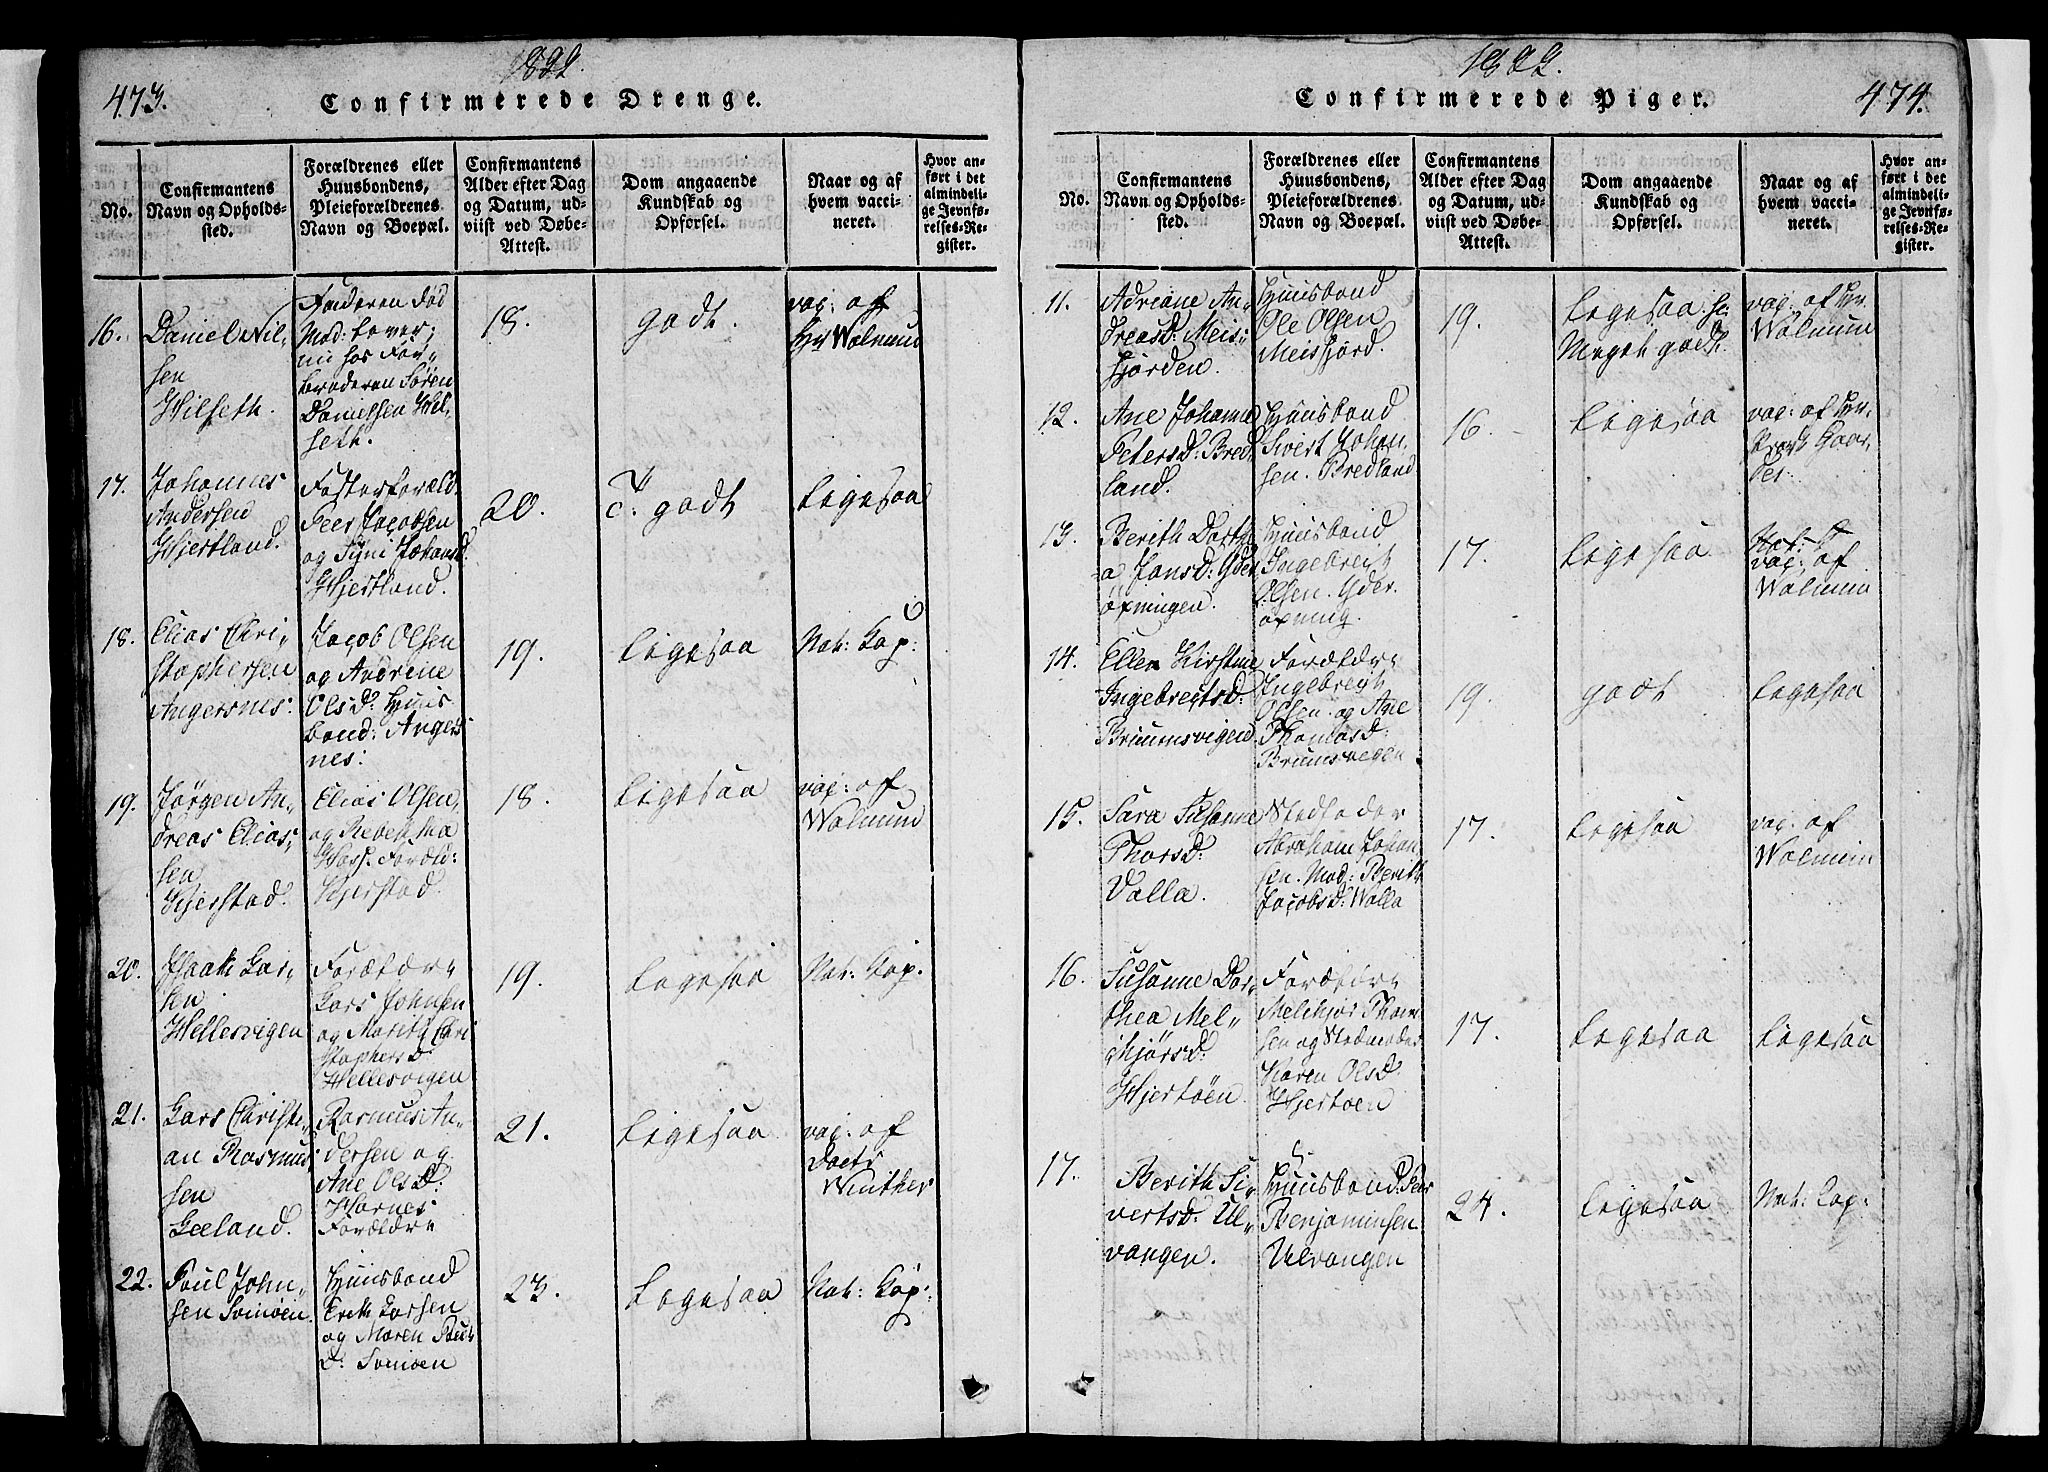 473.
1822.
Confirmerede Drenge.
No.
Confirmantens
Navn og Opholds-
sted.
Forældrenes eller
Huusbondens,
Pleieforældrenes
Navn og Boepæl.
Confirmantens
Alder efter Dag
og Datum, ud-
viist ved Døbe-
Attest.
Dom angaaende
Kundskab og
Opførsel.
Naar og af
hvem vacci-
neret.
Hvor an-
ført i det
almindeli-
ge Jevnfø-
relses-Re-
gister.
16.
Daniel Nil-
sen
Hilseth.
Faderen død
Mod: lever;
nu hos Far-
broderen Søren
Danielsen Hil-
seth.
18.
godt.
vac: af
Hr Walnum
17.
Johannes
Andersen
Hjertland.
Fosterforæld:
Peer Jacobsen
og Signi Johansd.
Hjertland.
20.
T.
c. godt
Ligesaa
18.
Elias Chri-
stophersen
Angersnes.
Jacob Olsen
og Andrine
Olsd: Huus
bond: Angers
nes:
19.
Ligesaa
Nat: Cop:
19.
Jørgen An-
dreas Elias-
sen
Hjerstad.
Elias Olsen,
og Rebekka
Foræld:
Hjerstad.
18.
Ligesaa
vac: af
Walnum
20.
Isaak Lar-
sen
Hellesvigen
Forældre
Lars Johnsen
og Chri
stophersd:
Hellesvigen
19.
Ligesaa
Nat: Cop.
21.
Lars Christi-
an Rasmus-
sen
Leeland.
Rasmus An-
dersen og
Ane Olsd:
Hornes
Forældre
21.
Ligesaa
vac: af
Doct:
Winther
22.
Poul John-
sen Somøen.
Huusbond
Erik Larsen
og Maren Poul
d: Somøen
23.
Ligesaa
Nat: Cop:
1822.
Confirmerede Piger.
474.
No.
Confirmantens
Navn og Opholds-
sted.
Forældrenes eller
Huusbondens,
Pleieforældrenes
Navn og Boepæl.
Confirmantens
Alder efter Dag
og Datum, ud-
viist ved Døbe-
Attest.
Dom angaaende
Kundskab og
Opførsel.
Naar og af
hvem vacci-
neret.
Hvor an-
ført i det
almindeli-
ge Jevnfø-
relses-Re-
gister.
11.
Adriane An-
dreasd: Meis-
fjorden.
Huusbond
Ole Olsen
Meisfjord.
19.
Ligesaa
Meget godt.
vac: af Hr.
Walnum
12.
Ane Johanna
Petersd: Bred
land.
Huusbond
Sivert Johan
sen. Bredland
16.
Ligesaa
vac: af Hr.
Gaar-
der.
13.
Berith Dorthe
a Jonsd: Yder
øxningen.
Huusbond
Ingebregt
Olsen. Yder
øxning.
17.
Ligesaa
vac: af
Walnum
14.
Ellen Kirstine
Ingebregtsd:
Bruunsvigen.
Forældre
Ingebregt
Olsen og Ane
Thomasd:
Bruunsvigen
19.
godt
Ligesaa
15.
Sara Susanne
Thorsd:
Valla.
Stedfader
Abraham Johan
sen. Mod: Berith
Jacobsd: Walla
17.
Ligesaa
vac: af
Walnum
16.
Susanne Dor-
thea Mel-
chjorsd:
Hjertøen.
Forældre
Melchior Thom
sen og Stedmoder
Karen Olsd.
Hjertøen
17.
Ligesaa
Ligesaa
17.
Berith Si-
vertsd: Ul-
vangen.
Huusbond: Peer
Benjaminsen
Ulvangen
24.
Ligesaa
Nat: Cop: